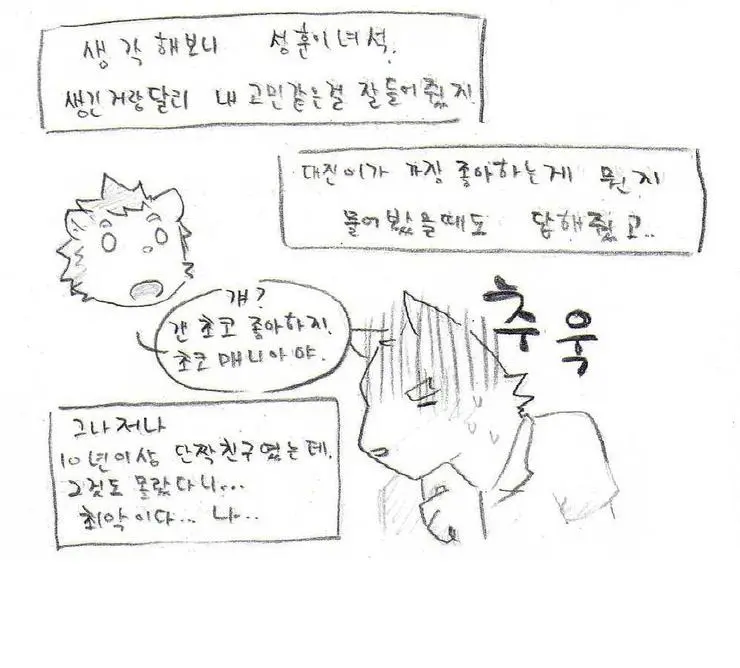 생각해보니 성훈이녀석.
생긴거랑달리 내 고민같은걸 잘들어줬지
대진이가 가장 좋아하는게 뭔지
물어봤을때도 답해줬고..
걔?
걘 초코 좋아하지.
초코 매니아야.
추욱
그나저나
10년이상 단짝친구였는데.
그것도 몰랐다니...
최악이다... 나...